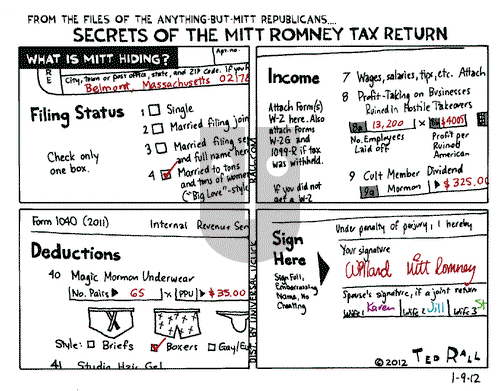 FROM THE FILES OF THE ANYTHING-BUT-MITT REPUBLICANS....
SECRETS OF THE MITT ROMNEY TAX RETURN
WHAT IS MITT HIDING?
Apt. no.
R
E
City, town or post office, state, and ZIP code. If you h
Belmont, Massachusetts 02178
Filing Status
Check only
one box.
1 Single
2 Married filing join
3 Married filing se
and full name her
4 Married to tons
and tons of women
("Big Love"-style
Income
Attach Form(s)
W-2 here. Also
attach Forms
W-2G and
1099-R if tax
was withheld.
If you did not
get a W-2
7 Wages, salaries, tips, etc. Attach
8 Profit-Taking on Businesses
Ruined in Hostile Takeovers
8a 13,200 × $4005
No. Employees
Laid off
Profit per
Ruined
American
9 Cult Member Dividend
9a Mormon $325.00
RALL.COM
DIST. BY UNIVERSAL UCLICK
Form 1040 (2011) Internal Revenue Ser
Deductions
40 Magic Mormon Underwear
No. Pairs 65 × PPU $35.00
Style: Briefs Boxers Gay/Eu
41 Studio Hair Gel
Sign
Here
Sign Full,
Embarrassing
Name, No
Cheating
Under penalty of perjury, I hereby
Your signature
Willard Mitt Romney
Spouse's signature, if a joint return
Wife 1 Karen Wife 2 Jill Wife 3 St
©2012 TED RALL
1-9-12